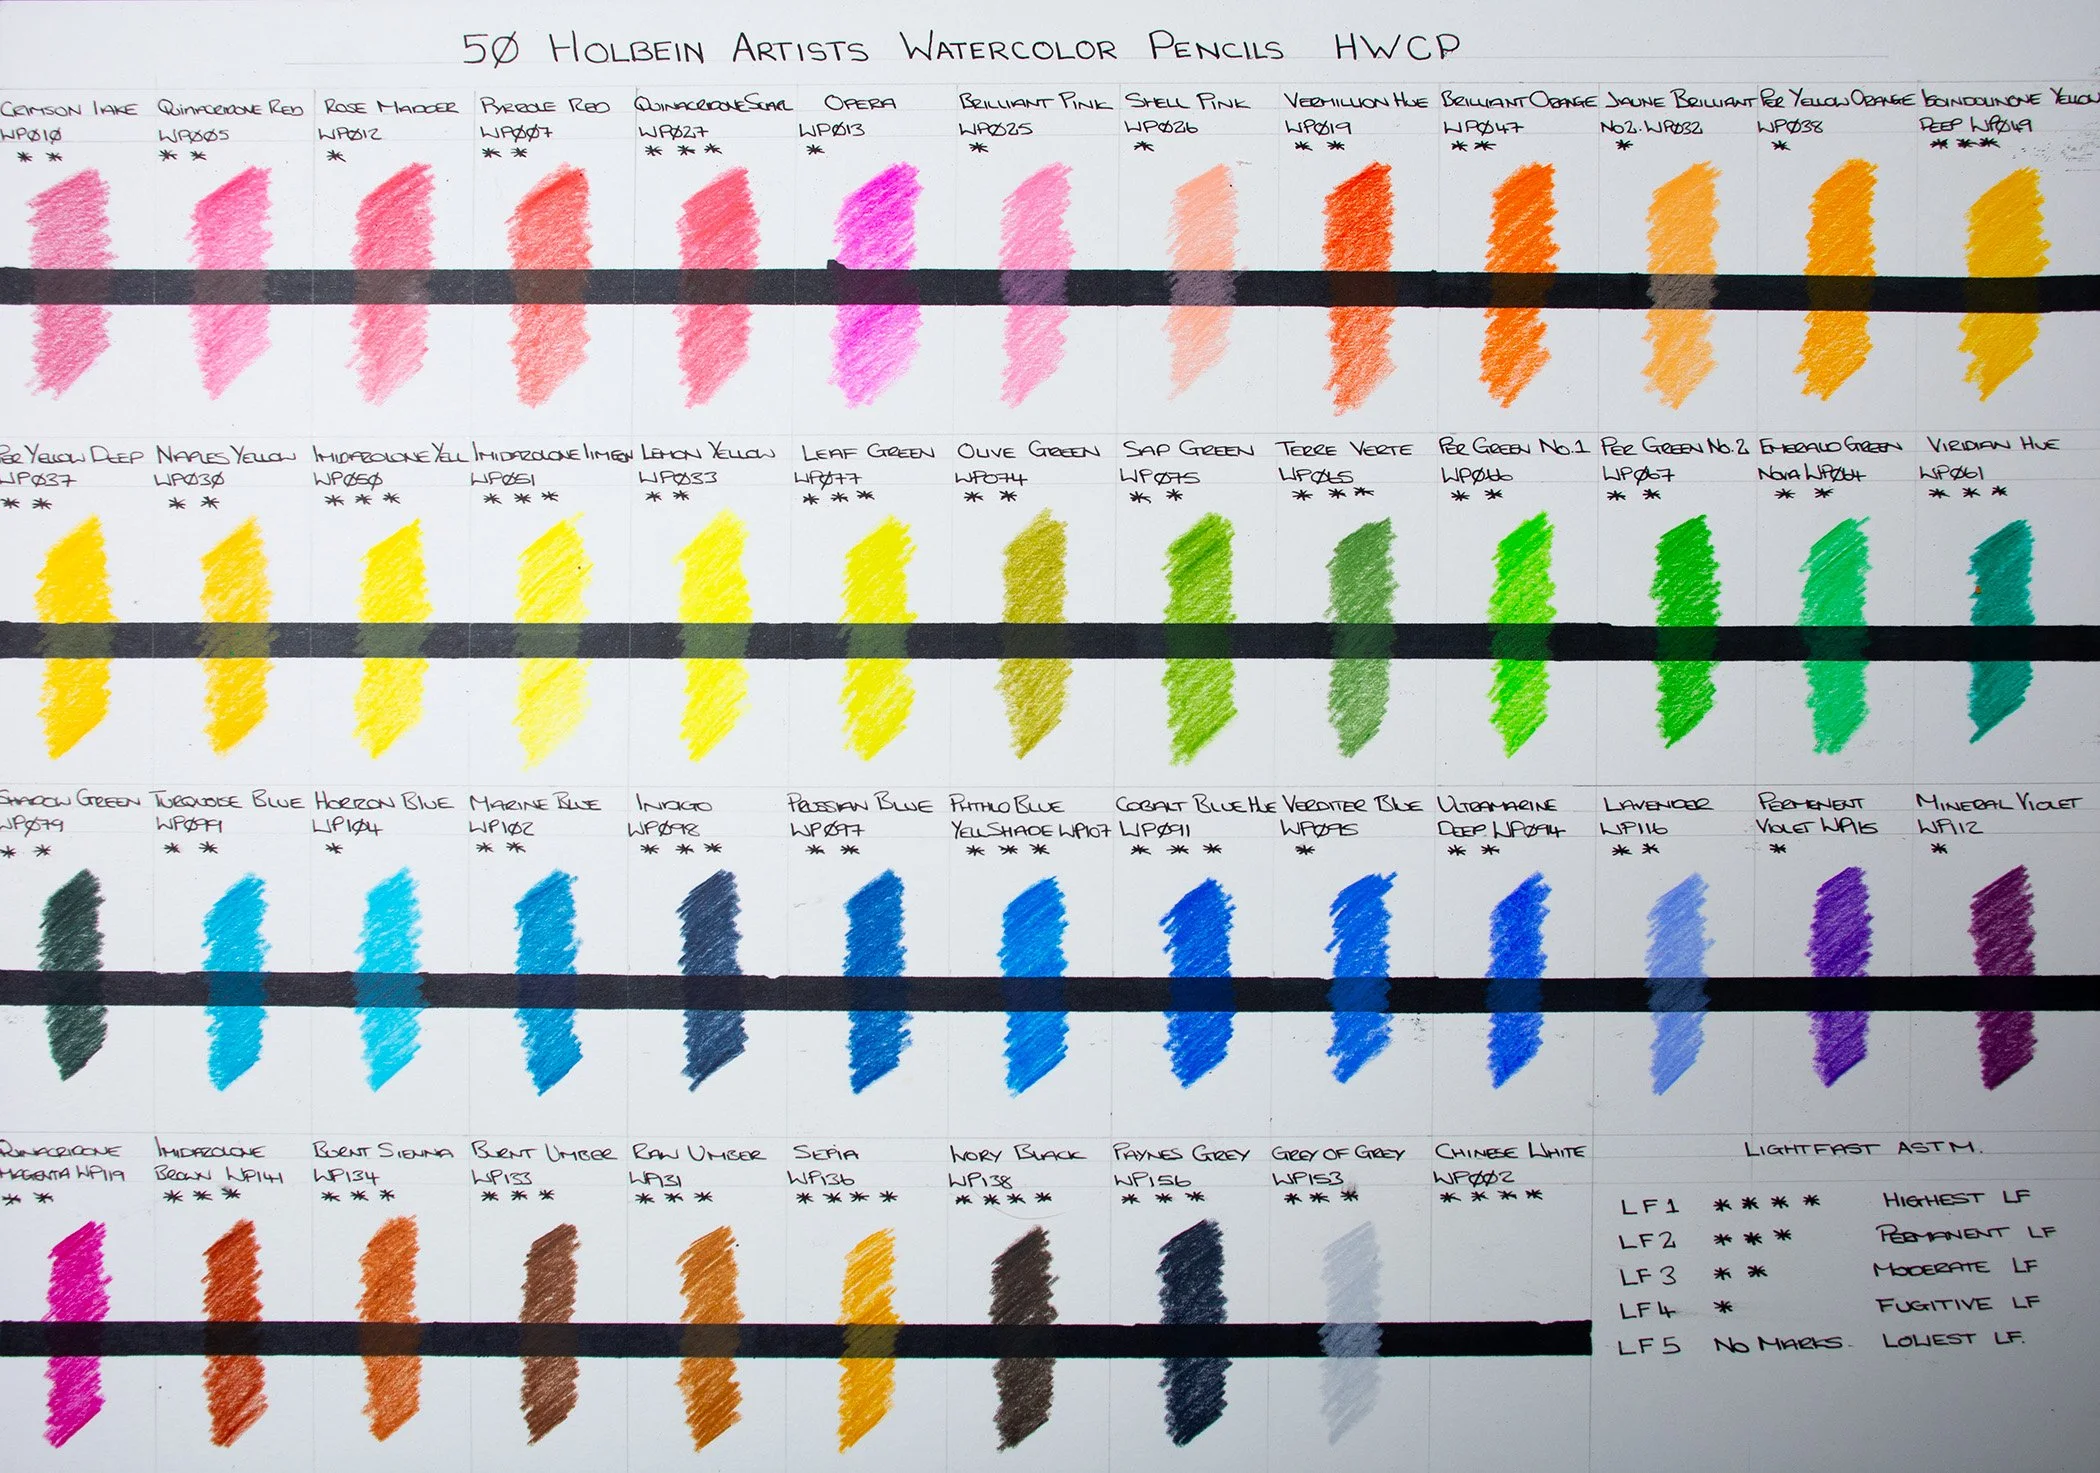 50 HOLBEIN ARTISTS WATERCOLOR PENCILS HWCP
CRIMSON LAKE QUINACRIDONE RED ROSE MADDER PYRROLE RED QUINACRIDONE SCARL OPERA BRILLIANT PINK SHELL PINK VERMILLION HUE BRILLIANT ORANGE JAUNE BRILLIANT PER YELLOW ORANGE ISOINDOLINONE YELLOW
WP010 WP005 WP012 WP007 WP027 WP013 WP025 WP026 WP019 WP047 NO2. WP032 WP038 DEEP WP049
** ** * ** *** * * * ** ** * * ***
PER YELLOW DEEP NAPLES YELLOW IMIDAZOLONE YELL IMIDAZOLONE LEMON LEMON YELLOW LEAF GREEN OLIVE GREEN SAP GREEN TERRE VERTE PER GREEN NO.1 PER GREEN NO.2 EMERALD GREEN VIRIDIAN HUE
WP037 WP030 WP050 WP051 WP033 WP077 WP074 WP075 WP065 WP066 WP067 NOVA WP064 WP061
** ** *** *** ** *** ** ** *** ** ** ** ***
SHADOW GREEN TURQUOISE BLUE HORIZON BLUE MARINE BLUE INDIGO PRUSSIAN BLUE PHTHLO BLUE COBALT BLUE HUE VERDITER BLUE ULTRAMARINE LAVENDER PERMENENT MINERAL VIOLET
WP079 WP099 WP104 WP102 WP098 WP097 YELLSHADE WP107 WP091 WP095 DEEP WP094 WP116 VIOLET WP115 WP112
** ** * ** *** ** *** *** * ** ** * *
QUINACRIDONE IMIDAZOLONE BURNT SIENNA BURNT UMBER RAW UMBER SEPIA IVORY BLACK PAYNES GREY GREY OF GREY CHINESE WHITE LIGHTFAST ASTM.
MAGENTA WP119 BROWN WP141 WP134 WP133 WP131 WP136 WP138 WP156 WP153 WP002
** *** *** *** *** **** **** *** *** ****
LF1 **** HIGHEST LF
LF2 *** PERMANENT LF
LF3 ** MODERATE LF
LF4 * FUGITIVE LF
LF5 NO MARKS. LOWEST LF.